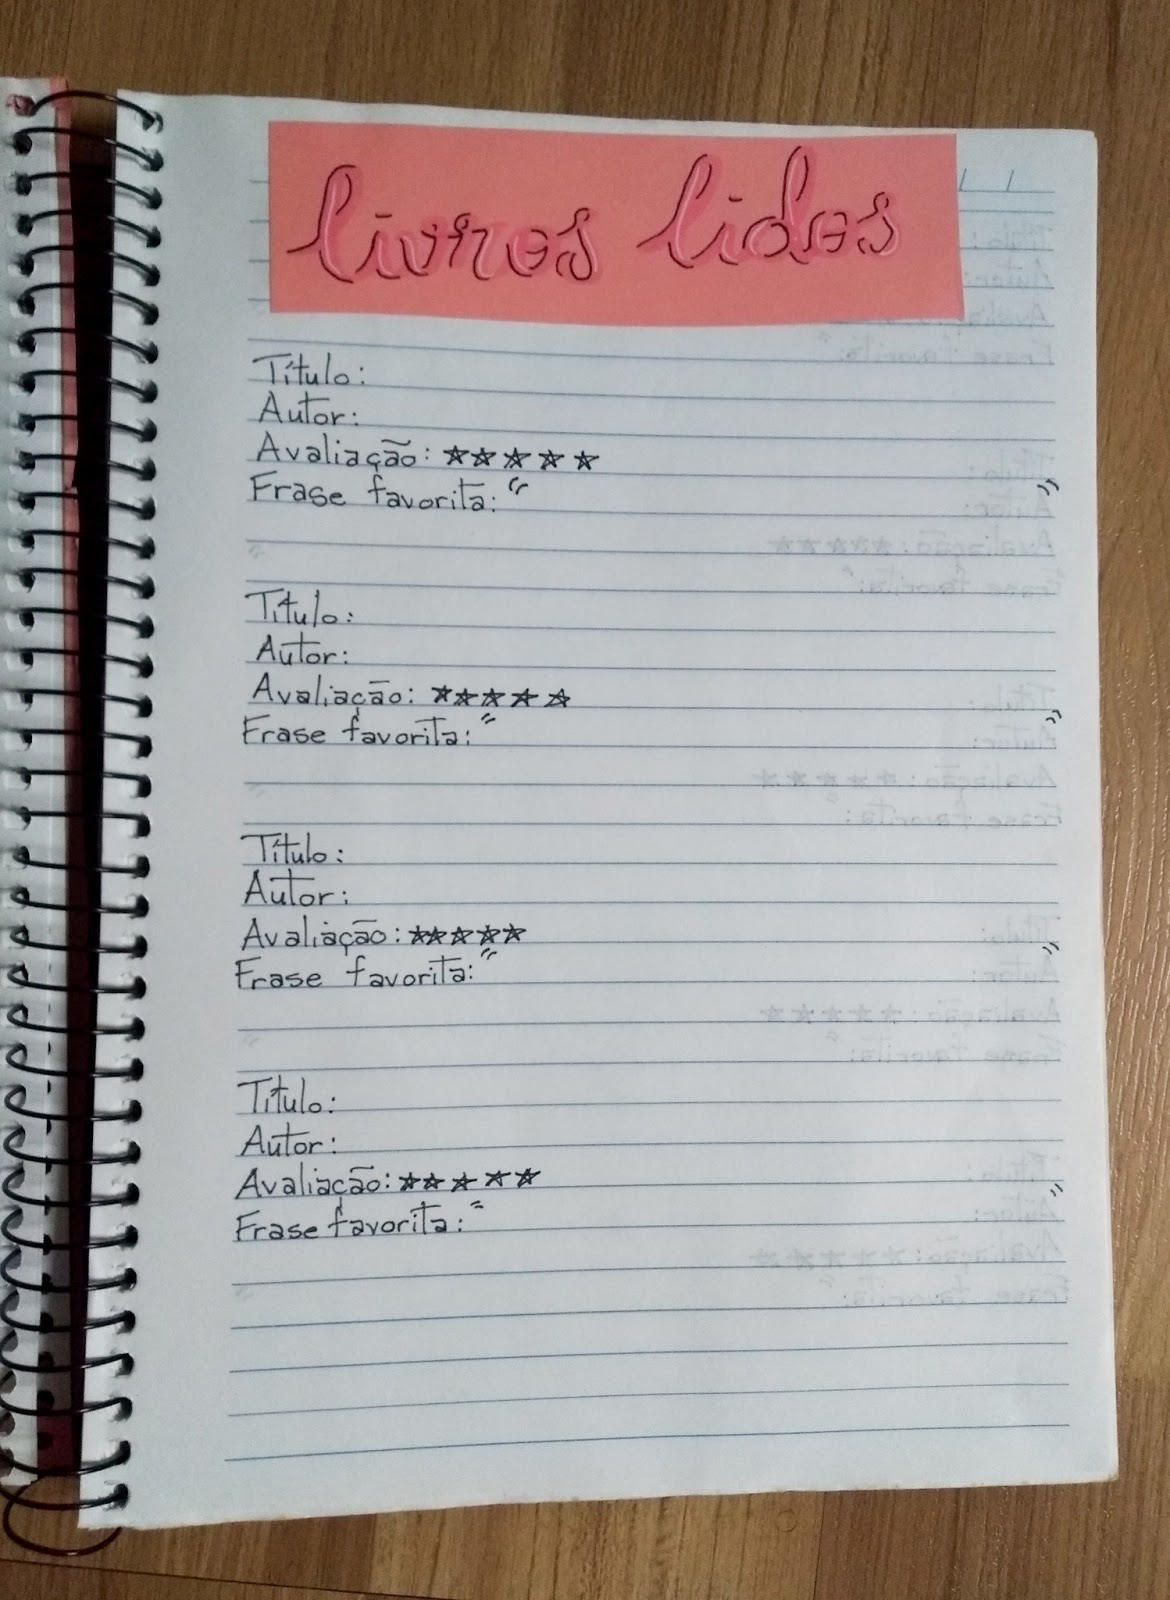 livros lidos
Título:
Autor:
Avaliação: ☆☆☆☆☆
Frase favorita: " "
Título:
Autor:
Avaliação: ☆☆☆☆☆
Frase favorita: " "
Título:
Autor:
Avaliação: ☆☆☆☆☆
Frase favorita: " "
Título:
Autor:
Avaliação: ☆☆☆☆☆
Frase favorita: " "